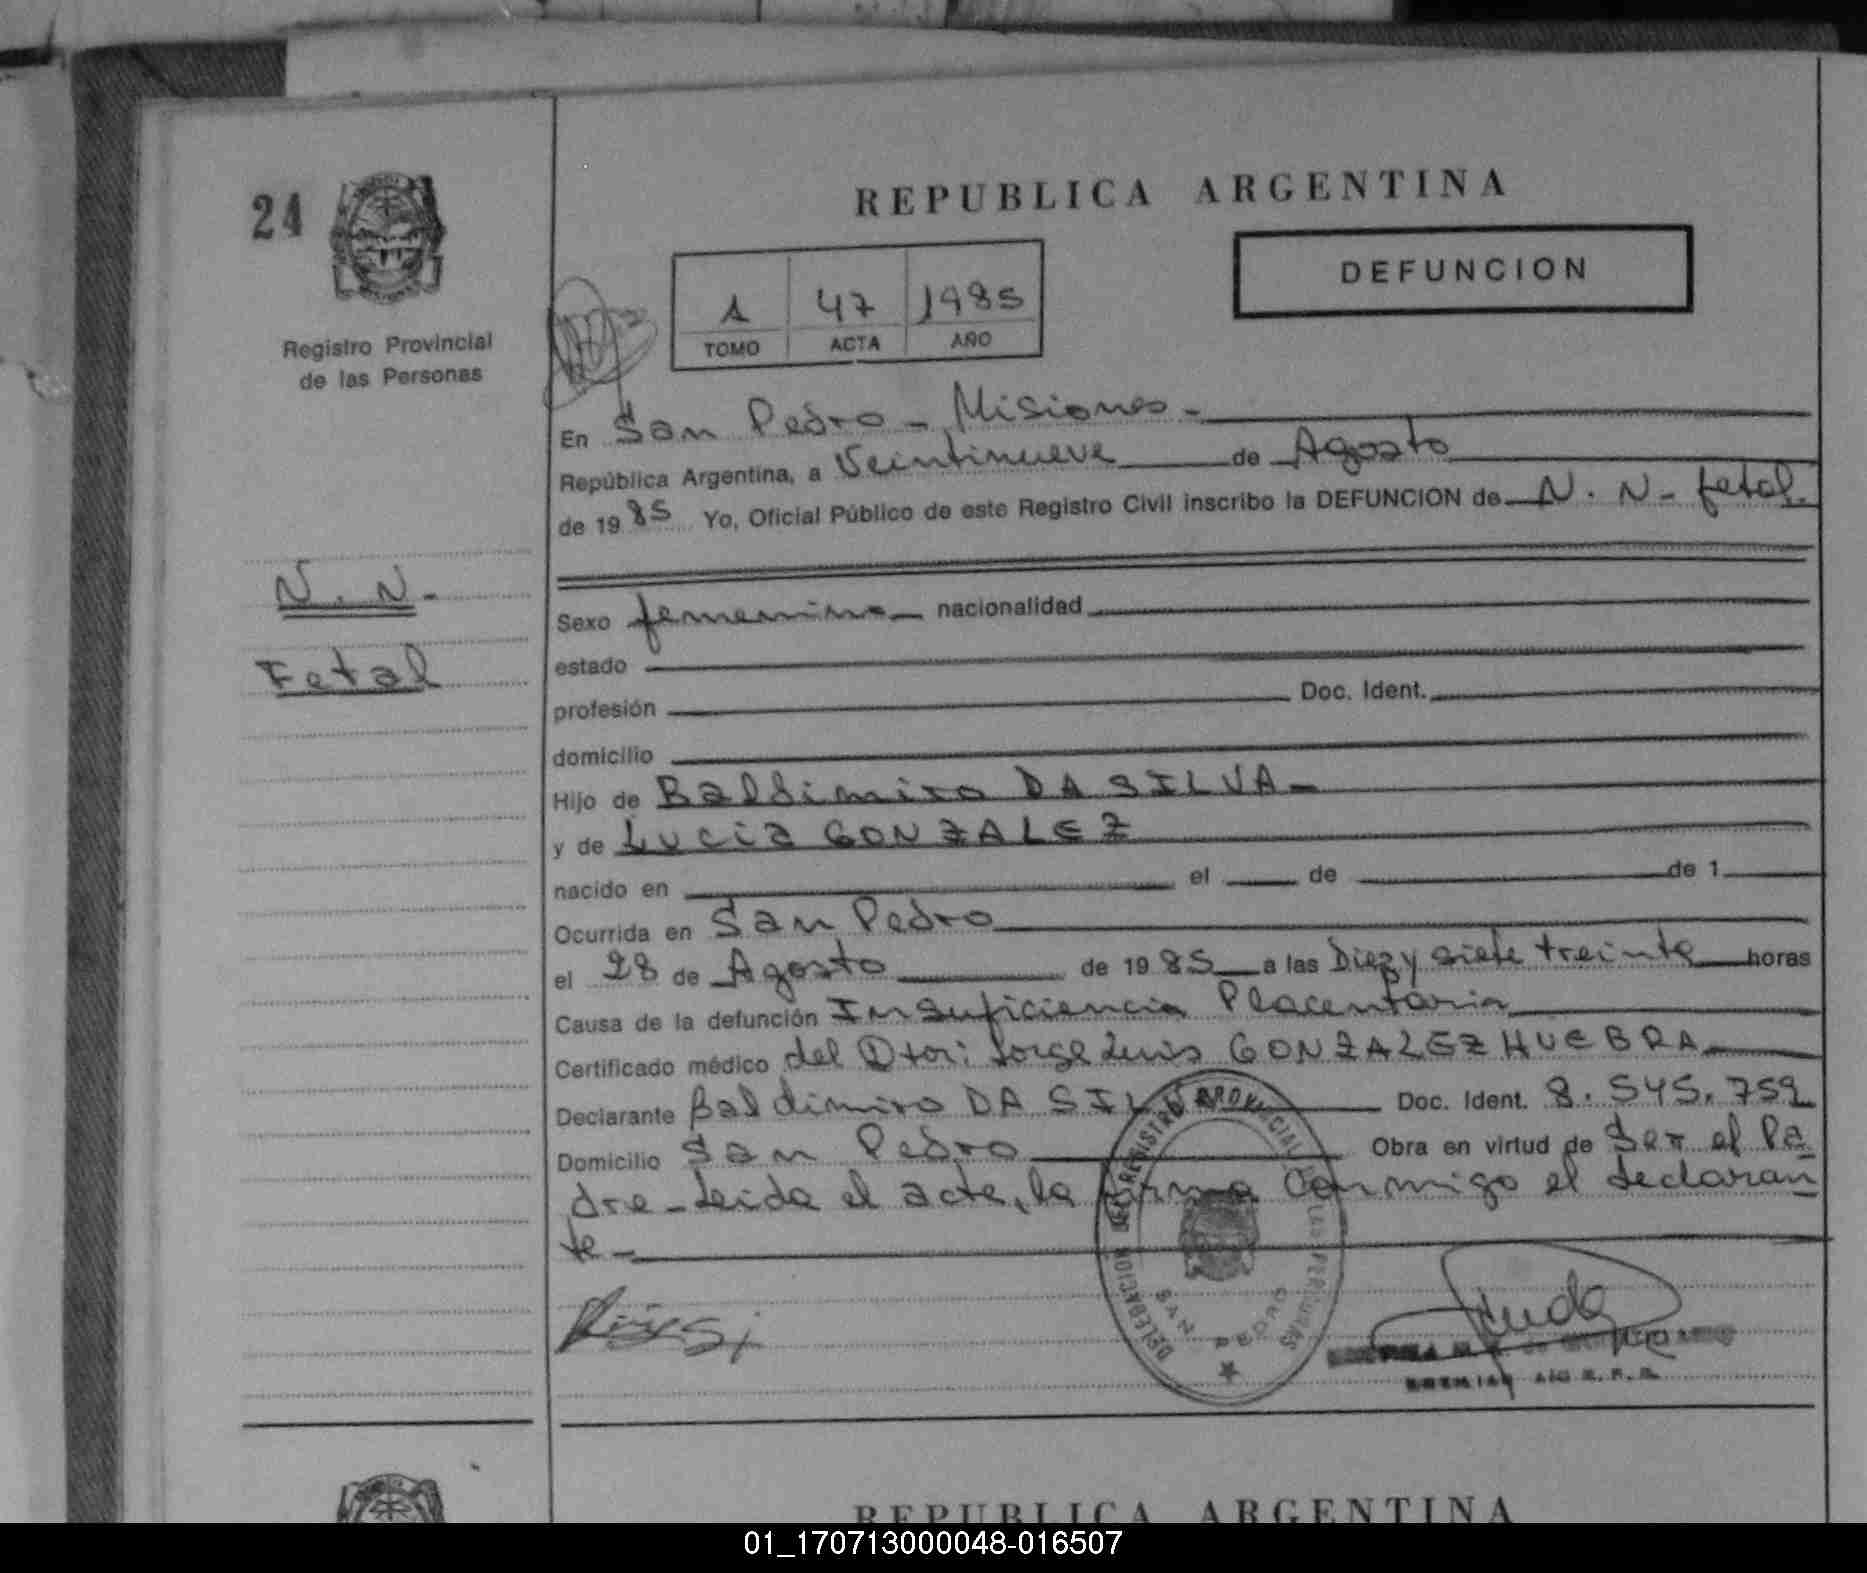 24
REPUBLICA ARGENTINA
DEFUNCION
1 47 1985
TOMO ACTA AÑO
Registro Provincial
de las Personas
En San Pedro - Misiones -
República Argentina, a Veintinueve de Agosto
de 1985 Yo, Oficial Público de este Registro Civil inscribo la DEFUNCION de N. N- fetal.
N. N.
Fetal
Sexo femenino nacionalidad
estado
profesión Doc. Ident.
domicilio
Hijo de Baldimiro DA SILVA-
y de Lucia GONZALEZ
nacido en el de de 1
Ocurrida en San Pedro
el 28 de Agosto de 1985 a las Diez y siete treinta horas
Causa de la defunción Insuficiencia Placentaria
Certificado médico del Dtor: Jorge Luis GONZALEZ HUEBRA
Declarante Baldimiro DA SILVA Doc. Ident. 8.545.759
Domicilio San Pedro Obra en virtud de Ser el Pa
dre-Leida el acta, la firma Conmigo el declaran
te-
DELEGACION DEL REGISTRO PROVINCIAL DE LAS PERSONAS
SAN PEDRO
REPUBLICA ARGENTINA
01_170713000048-016507